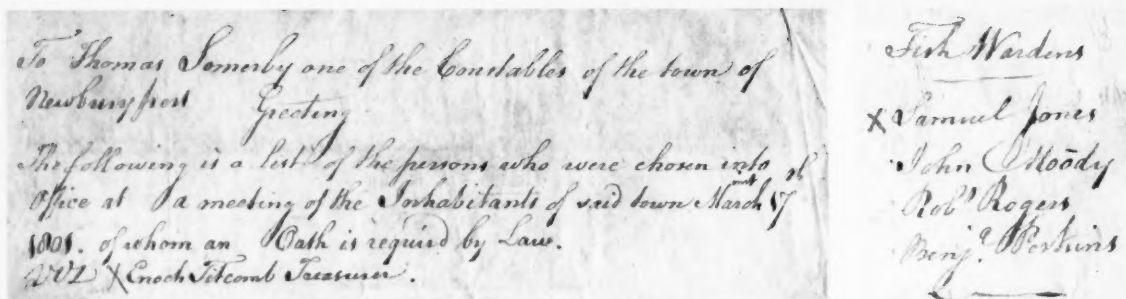 To Thomas Somerby one of the Constables of the town of
Newburyport Greeting
The following is a list of the persons who were chosen into
Office at a meeting of the Inhabitants of said town March 17th
1801. of whom an Oath is required by Law.
VIZ X Enoch Titcomb Treasurer.
Fish Wardens
X Samuel Jones
John Moody
Robt Rogers
Benja. Perkins